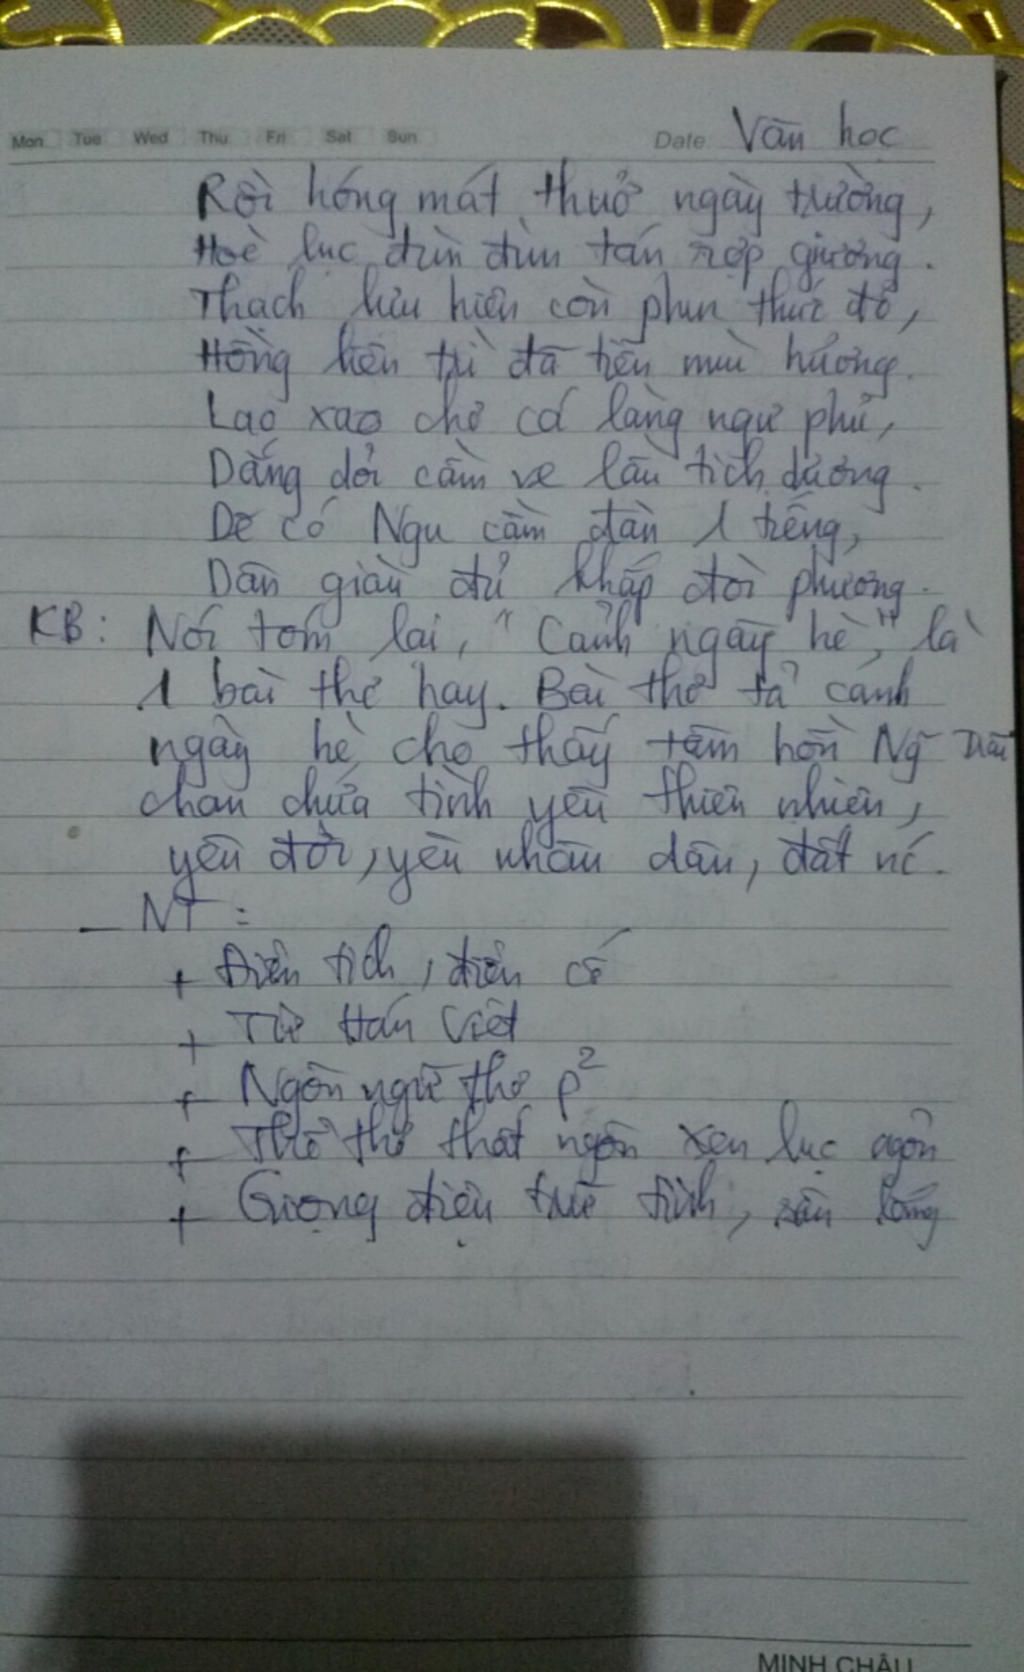 Mon Tue Wed Thu Fri Sat Sun Date Văn học
Rồi hóng mát thuở ngày trường,
Hoè lục đùn đùn tán rợp giương.
Thạch lựu hiên còn phun thức đỏ,
Hồng liên trì đã tiễn mùi hương.
Lao xao chợ cá làng ngư phủ,
Dắng dỏi cầm ve lầu tịch dương.
Dẽ có Ngu cầm đàn 1 tiếng,
Dân giàu đủ khắp đòi phương.
KB: Nói tóm lại, "Cảnh ngày hè" là
1 bài thơ hay. Bài thơ tả cảnh
ngày hè cho thấy tâm hồn Ng~ Trãi
chan chứa tình yêu thiên nhiên,
yêu đời, yêu nhân dân, đất nc.
- NT:
+ Điển tích, điển cố
+ Từ Hán Việt
+ Ngôn ngữ thơ p²
+ Thể thơ thất ngôn xen lục ngôn
+ Giọng điệu trữ tình, sâu lắng
MINH CHÂU